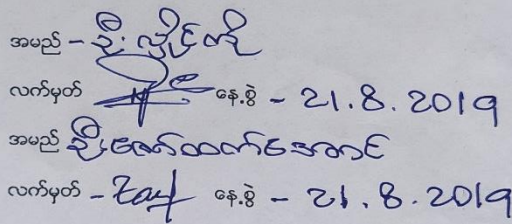 အမည် - ဦးလှိုင်တိုး
လက်မှတ် နေ့စွဲ - 21.8.2019
အမည် ဦးဇော်ထက်အောင်
လက်မှတ် - Zay နေ့စွဲ - 21.8.2019